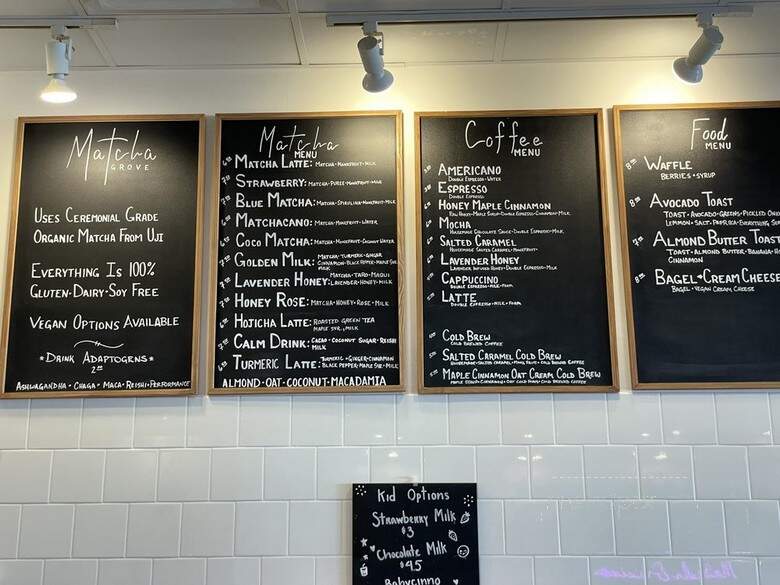 Matcha
GROVE
USES CEREMONIAL GRADE
ORGANIC MATCHA FROM UJI
EVERYTHING IS 100%
GLUTEN-DAIRY-SOY FREE
VEGAN OPTIONS AVAILABLE
*DRINK ADAPTOGENS*
ASHWAGANDHA • CHAGA • MACA • REISHI • PERFORMANCE
Matcha
MENU
MATCHA LATTE: MATCHA•MONKFRUIT•MILK
STRAWBERRY: MATCHA•PUREE•MONKFRUIT•MILK
BLUE MATCHA: MATCHA•SPIRULINA•MONKFRUIT•MILK
MATCHACANO: MATCHA•MONKFRUIT•WATER
COCO MATCHA: MATCHA•MONKFRUIT•COCONUT WATER
GOLDEN MILK: MATCHA•TURMERIC•GINGER
CINNAMON•BLACK PEPPER•MAPLE SYR
MILK
LAVENDER HONEY: MATCHA•TARO•MAQUI
LAVENDER•HONEY•MILK
HONEY ROSE: MATCHA•HONEY•ROSE•MILK
HOJICHA LATTE: ROASTED GREEN TEA
MAPLE SYR.•MILK
CALM DRINK: CACAO•COCONUT SUGAR•REISHI
MILK
TURMERIC LATTE: TURMERIC•GINGER•CINNAMON
BLACK PEPPER•MAPLE SYR•MILK
ALMOND•OAT•COCONUT•MACADAMIA
Coffee
MENU
AMERICANO
DOUBLE ESPRESSO•WATER
ESPRESSO
DOUBLE ESPRESSO
HONEY MAPLE CINNAMON
RAW HONEY•MAPLE SYRUP•DOUBLE ESPRESSO•CINNAMON•MILK
MOCHA
HOMEMADE CHOCOLATE SAUCE•DOUBLE ESPRESSO•MILK
SALTED CARAMEL
HOMEMADE SALTED CARAMEL•MONKFRUIT•
LAVENDER HONEY
LAVENDER INFUSED HONEY•DOUBLE ESPRESSO•MILK
CAPPUCCINO
DOUBLE ESPRESSO•MILK•FOAM
LATTE
DOUBLE ESPRESSO•MILK•FOAM
COLD BREW
COLD BREWED COFFEE
SALTED CARAMEL COLD BREW
HOMEMADE•SALTED CARAMEL•MILK•COLD BREWED COFFEE
MAPLE CINNAMON OAT CREAM COLD BREW
MAPLE SYRUP•CINNAMON•OAT CREAM•COLD BREWED COFFEE
Food
MENU
WAFFLE
BERRIES•SYRUP
AVOCADO TOAST
TOAST•AVOCADO•GREENS•PICKLED
LEMMON•SALT•PAPRIKA•EVERYTHING
ALMOND BUTTER TOAST
TOAST•ALMOND BUTTER•BANANA
CINNAMON
BAGEL+CREAM CHEESE
BAGEL•VEGAN CREAM CHEESE
Kid Options
Strawberry Milk
$3
Chocolate Milk
$4.5
Babycinno